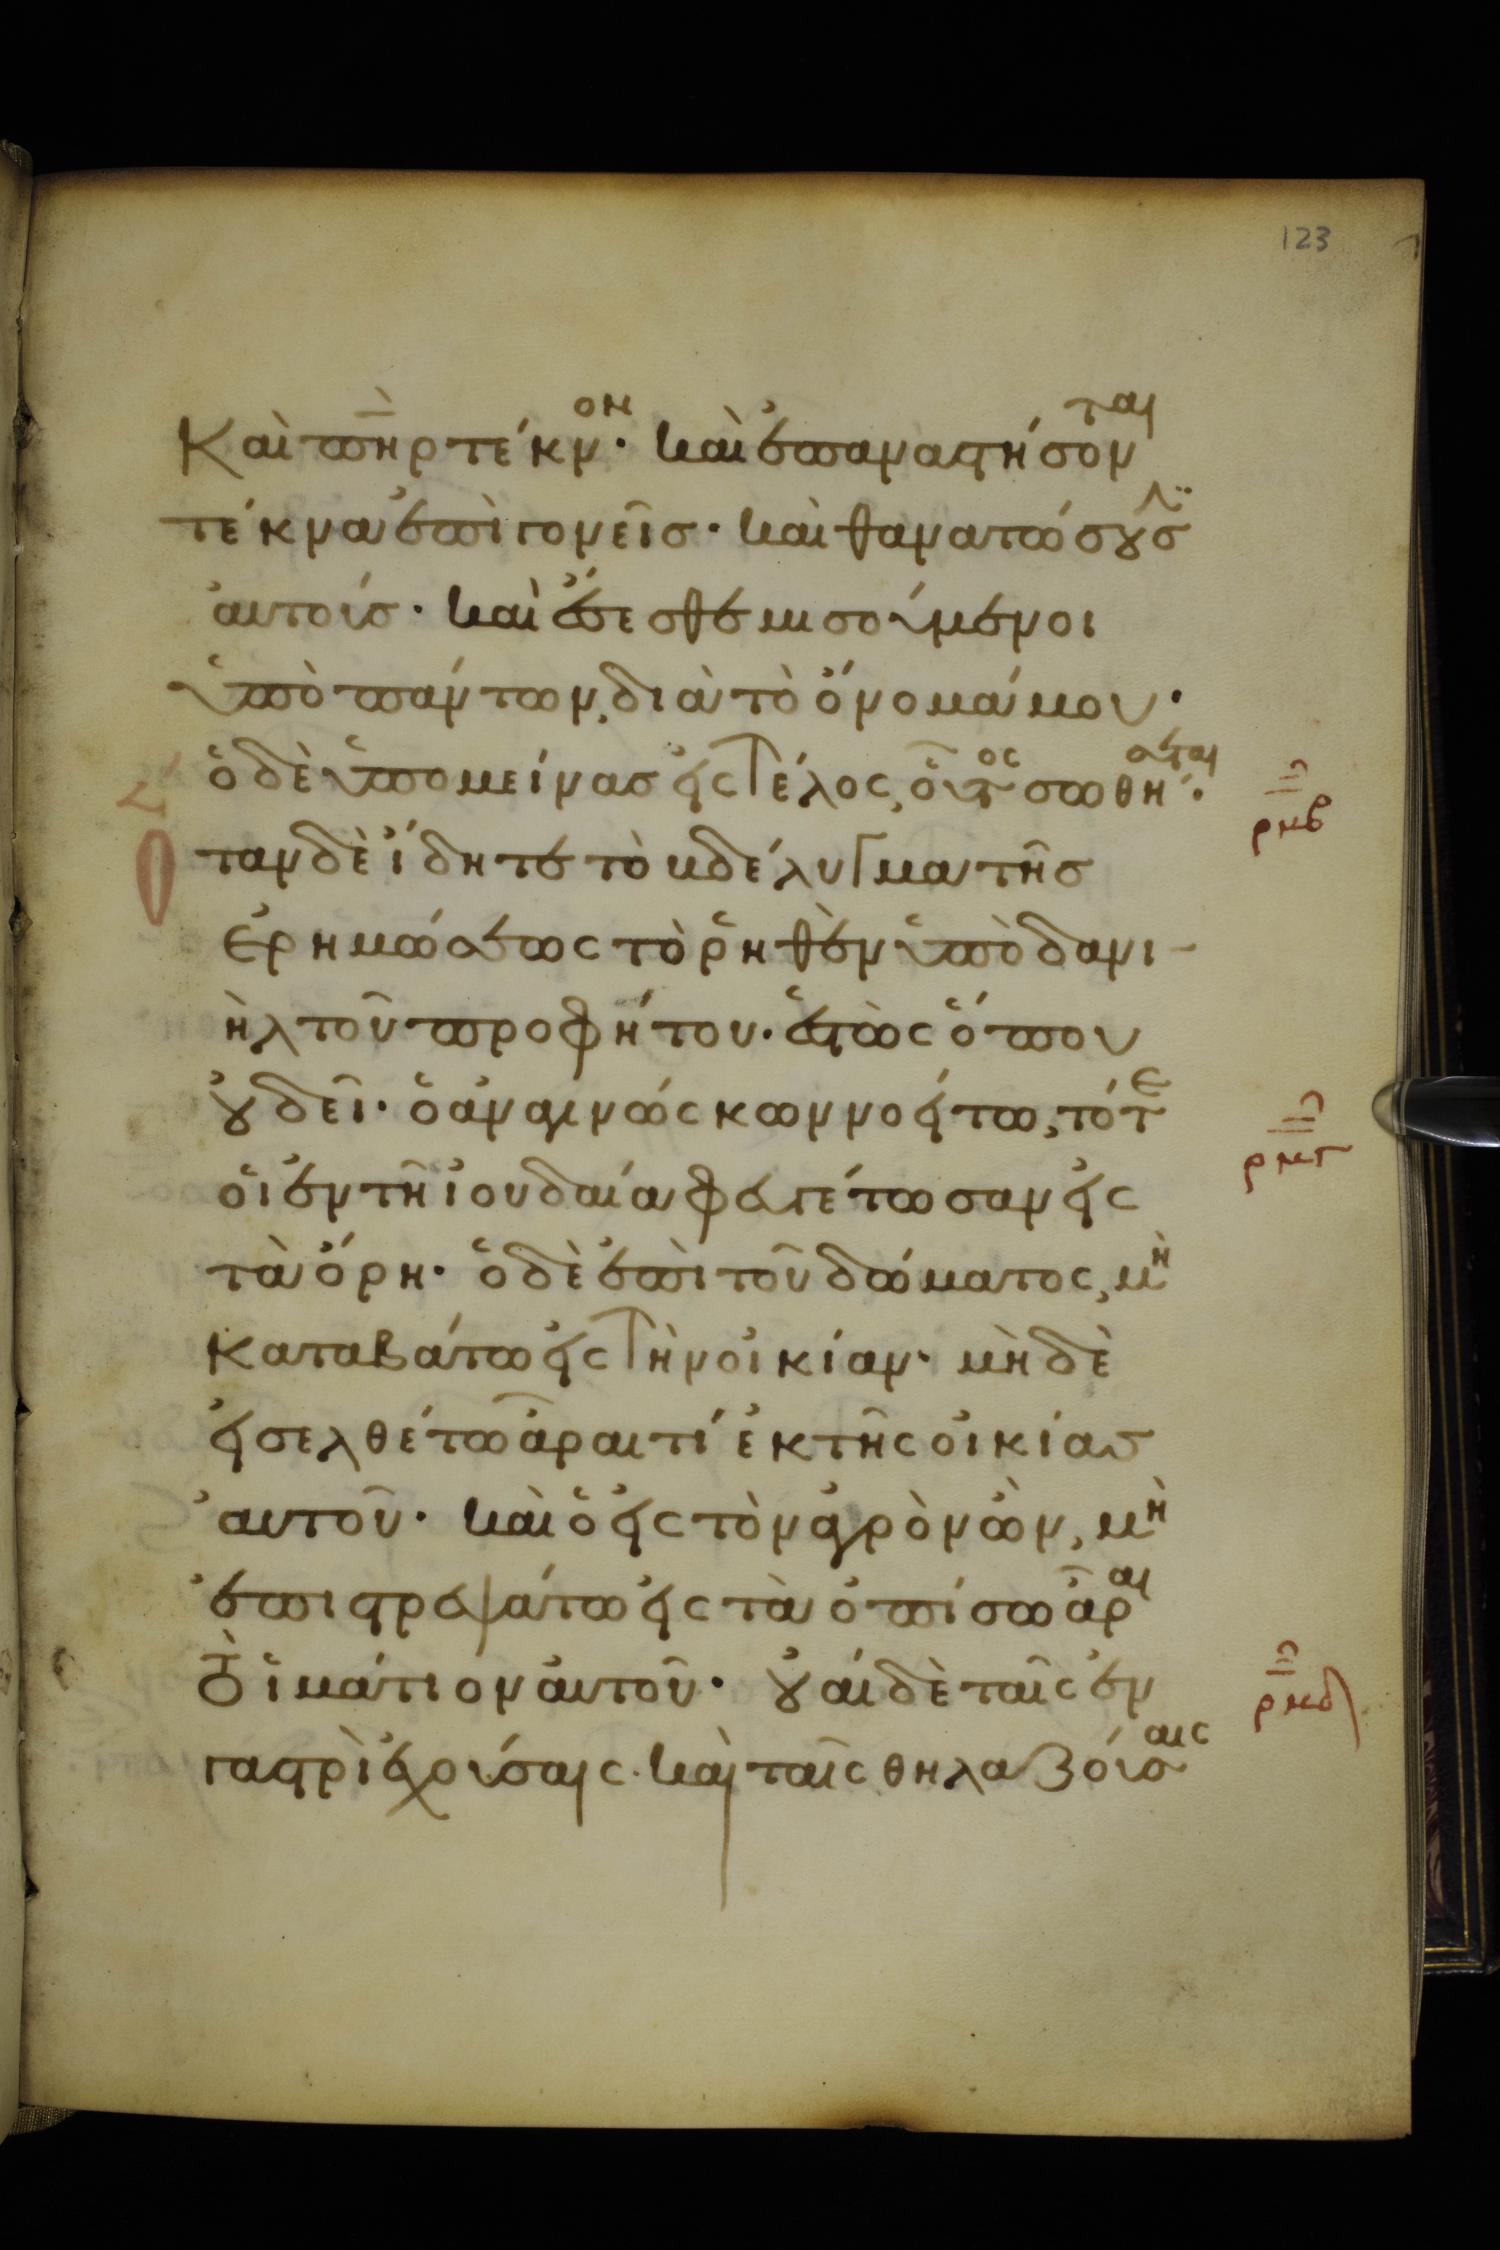 123
Καὶ πη̅̀ρ τέκνον· καὶ ἐπαναστήσονται
τέκνα ἐπὶ γονεῖσ· καὶ θανατώσουσϊν
ἀυτούσ· καὶ ἔσεσθε μισούμενοι
ὑπὸ πάντων, διὰ τὸ ὄνομά μου·
ὁ δὲ ὑπομείνασ εἰς τέλος, οὗτος σωθήσεται·
ρμβ
Ὅταν δὲ ἴδητε τὸ βδέλυγμα τῆσ
ἐρημώσεως τὸ ῥηθὲν ὑπὸ δανι-
ὴλ τοῦ προφήτου· ἑστὼς ὅπου
οὐ δεῖ· ὁ ἀναγινώσκων νοείτω, τότε
ρμγ
οἱ ἐν τῆ ἰουδαία φευγέτωσαν εἰς
τὰ ὄρη· ὁ δὲ ἐπὶ τοῦ δώματος, μὴ
καταβάτω εἰς τὴν οἰκίαν· μὴ δὲ
εἰσελθέτω ἆραι τί ἐκ τῆς οἰκίασ
ἀυτοῦ· καὶ ὁ εἰς τὸν ἀγρὸν ὢν, μὴ
ἐπιστρεψάτω εἰς τὰ ὀπίσω ἆραι
τὸ ἱμάτιον ἀυτοῦ· οὐαί δὲ ταῖς ἐν
ρμδ
γαστρὶ ἐχούσαις· καὶ ταῖς θηλαζούσαις